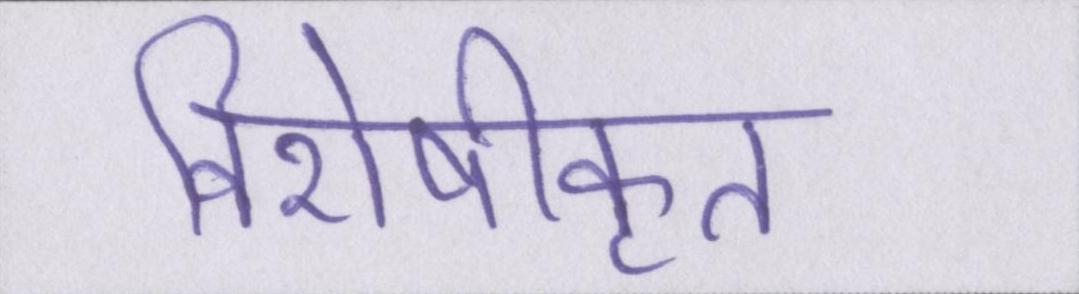 विशेषीकृत